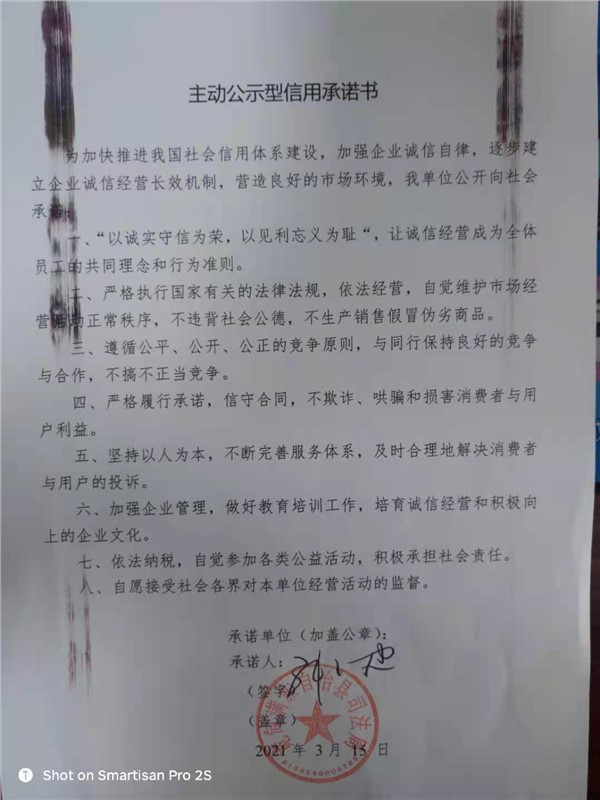 主动公示型信用承诺书
为加快推进我国社会信用体系建设，加强企业诚信自律，逐步建
立企业诚信经营长效机制，营造良好的市场环境，我单位公开向社会
承诺：
一、“以诚实守信为荣，以见利忘义为耻“，让诚信经营成为全体
员工的共同理念和行为准则。
二、严格执行国家有关的法律法规，依法经营，自觉维护市场经
营活动正常秩序，不违背社会公德，不生产销售假冒伪劣商品。
三、遵循公平、公开、公正的竞争原则，与同行保持良好的竞争
与合作，不搞不正当竞争。
四、严格履行承诺，信守合同，不欺诈、哄骗和损害消费者与用
户利益。
五、坚持以人为本，不断完善服务体系，及时合理地解决消费者
与用户的投诉。
六、加强企业管理，做好教育培训工作，培育诚信经营和积极向
上的企业文化。
七、依法纳税，自觉参加各类公益活动，积极承担社会责任。
八、自愿接受社会各界对本单位经营活动的监督。
承诺单位（加盖公章）：
承诺人：
（签字）
（盖章）
满族自治县司法局
2021 年 3 月 15 日
Shot on Smartisan Pro 2S